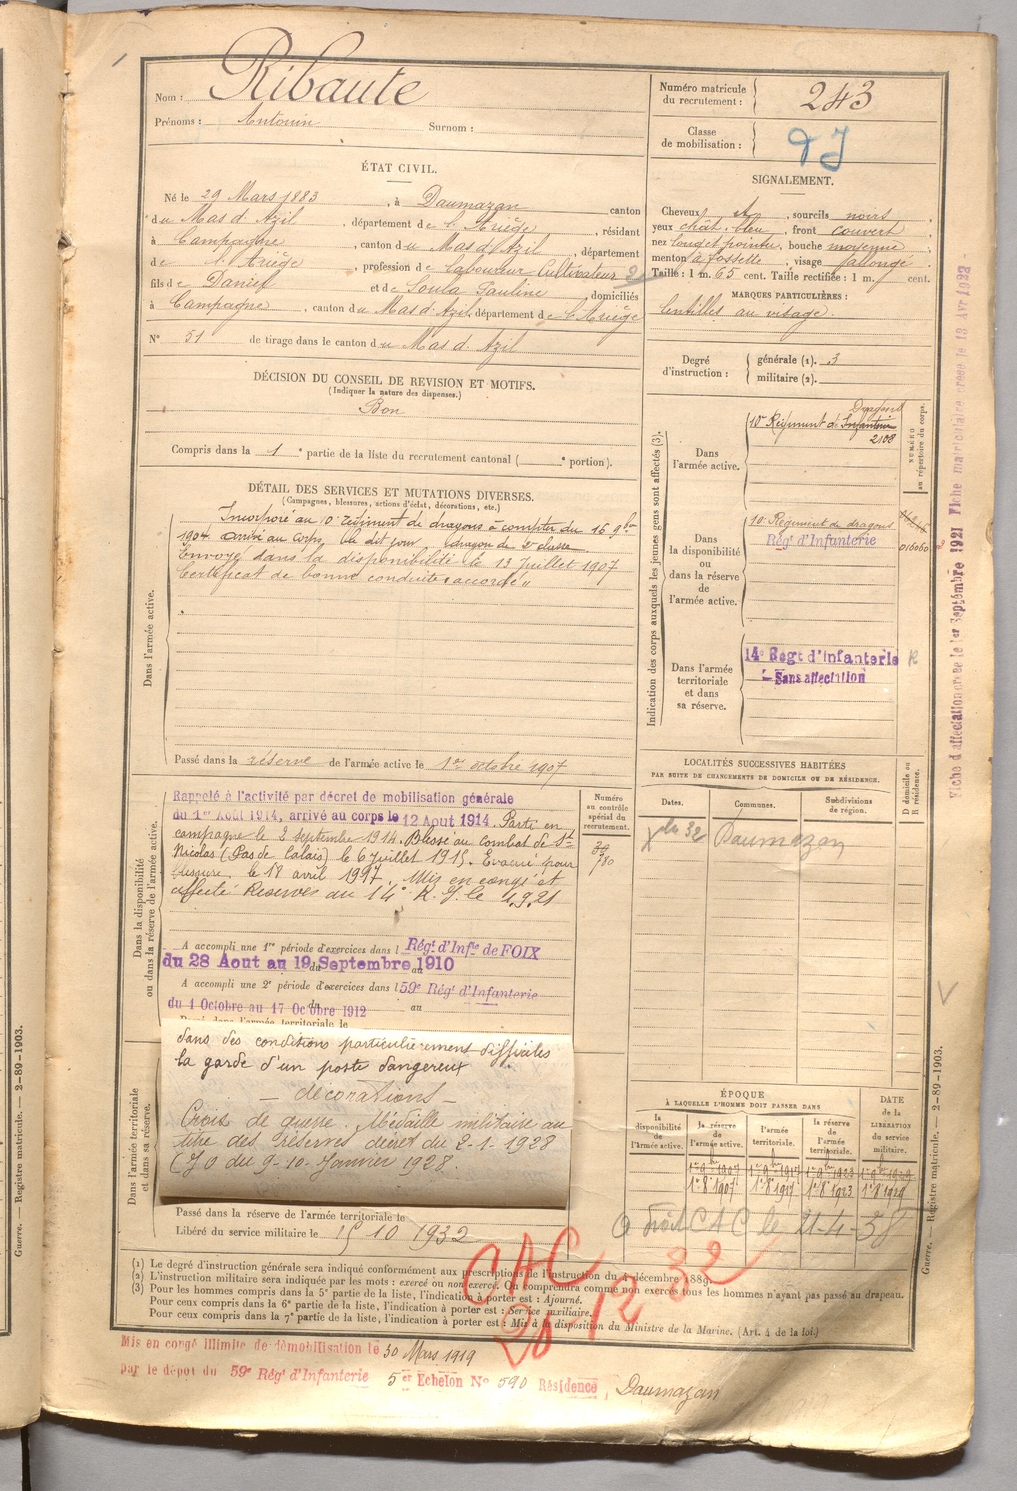 Nom : Ribaute
Prénoms : Antonin Surnom :
ÉTAT CIVIL.
Né le 29 Mars 1883, à Daumazan canton
du Mas d'Azil, département de l'Ariège, résidant
à Campagne, canton du Mas d'Azil, département
de l'Ariège, profession de Laboureur Cultivateur
fils de Daniel et de Soula Pauline domiciliés
à Campagne, canton du Mas d'Azil, département de l'Ariège
N° 51 de tirage dans le canton du Mas d'Azil
DÉCISION DU CONSEIL DE REVISION ET MOTIFS.
(Indiquer la nature des dispenses.)
Bon
Compris dans la 1e partie de la liste du recrutement cantonal ( e portion).
DÉTAIL DES SERVICES ET MUTATIONS DIVERSES.
(Campagnes, blessures, actions d'éclat, décorations, etc.)
Dans l'armée active.
Incorporé au 10e régiment de dragons à compter du 16 9bre
1904 arrivé au corps le dit jour dragon de 2e classe
Envoyé dans la disponibilité le 13 juillet 1907
Certificat de bonne conduite "accordé"
Passé dans la réserve de l'armée active le 1er octobre 1907
Dans la disponibilité
ou dans la réserve de l'armée active.
Rappelé à l'activité par décret de mobilisation générale
du 1er Août 1914, arrivé au corps le 12 Aout 1914. Parti en
campagne le 2 septembre 1914. Blessé au combat de St
Nicolas (Pas de Calais) le 6 juillet 1915. Evacué pour
blessure le 18 avril 1917. Mis en congé et
affecté Reserves au 14e R. I. le 1.9.21
A accompli une 1re période d'exercices dans l Régt d'Infie de FOIX
du 28 Aout au 19 Septembre 1910
A accompli une 2e période d'exercices dans l 59e Régt d'Infanterie
du 1 Octobre au 17 Octobre 1912 au
Dans l'armée territoriale
et dans sa réserve.
dans des conditions particulièrement difficiles
la garde d'un poste dangereux
— décorations —
Croix de guerre. Médaille militaire au
titre des réserves décret du 2-1-1928
(JO du 9-10-Janvier 1928.
Passé dans la réserve de l'armée territoriale le
Libéré du service militaire le 15 10 1932
Numéro matricule
du recrutement : 243
Classe
de mobilisation :
SIGNALEMENT.
Cheveux et, sourcils noirs,
yeux chât. bleu, front couvert
nez long et pointu, bouche moyenne
menton à fossette, visage allongé.
Taille : 1 m. 65 cent. Taille rectifiée : 1 m. cent.
MARQUES PARTICULIÈRES :
lentilles au visage.
Degré
d'instruction :
générale (1). 3
militaire (2).
Indication des corps auxquels les jeunes gens sont affectés (3).
NUMÉRO
au répertoire du corps.
Dans
l'armée active.
Dragons
10e Régiment d'Infanterie
2108
Dans
la disponibilité
ou
dans la réserve
de
l'armée active.
10e Régiment de dragons
Régt d'Infanterie
016060
Dans l'armée
territoriale
et dans
sa réserve.
14e Regt d'Infanterie R
Sans affectation
Numéro
au contrôle
spécial du
recrutement.
780
LOCALITÉS SUCCESSIVES HABITÉES
PAR SUITE DE CHANGEMENTS DE DOMICILE OU DE RÉSIDENCE.
Dates. Communes. Subdivisions
de région.
D domicile ou
R résidence.
Xbre 32 Daumazan
ÉPOQUE
À LAQUELLE L'HOMME DOIT PASSER DANS
la
disponibilité
de
l'armée active.
la réserve
de
l'armée active.
l'armée
territoriale.
la réserve
de
l'armée
territoriale.
DATE
de la
LIBÉRATION
du service
militaire.
1er 9bre 1907 1er 9bre 1917 1er 9bre 1923 1er 9bre 1929
1er 8bre 1907 1er 8bre 1917 1er 8bre 1923 1er 8bre 1929
CAC le 21-4-38
CAC
20 12 32
(1) Le degré d'instruction générale sera indiqué conformément aux prescriptions de l'instruction du 4 décembre 1889.
(2) L'instruction militaire sera indiquée par les mots : exercé ou non exercé. On comprendra comme non exercés tous les hommes n'ayant pas passé au drapeau.
(3) Pour les hommes compris dans la 5e partie de la liste, l'indication à porter est : Ajourné.
Pour ceux compris dans la 6e partie de la liste, l'indication à porter est : Service auxiliaire.
Pour ceux compris dans la 7e partie de la liste, l'indication à porter est : Mis à la disposition du Ministre de la Marine. (Art. 4 de la loi.)
Mis en congé illimité de démobilisation le 30 Mars 1919
par le dépôt du 59e Régt d'Infanterie 5er Echelon N° 590 Résidence Daumazan
Fiche d'affectation créée le 1er Septembre 1921 Fiche matriculaire créée le 13 Avr 1933
Guerre. — Registre matricule. — 2-89-1903.
Guerre. — Registre matricule. — 2-89-1903.